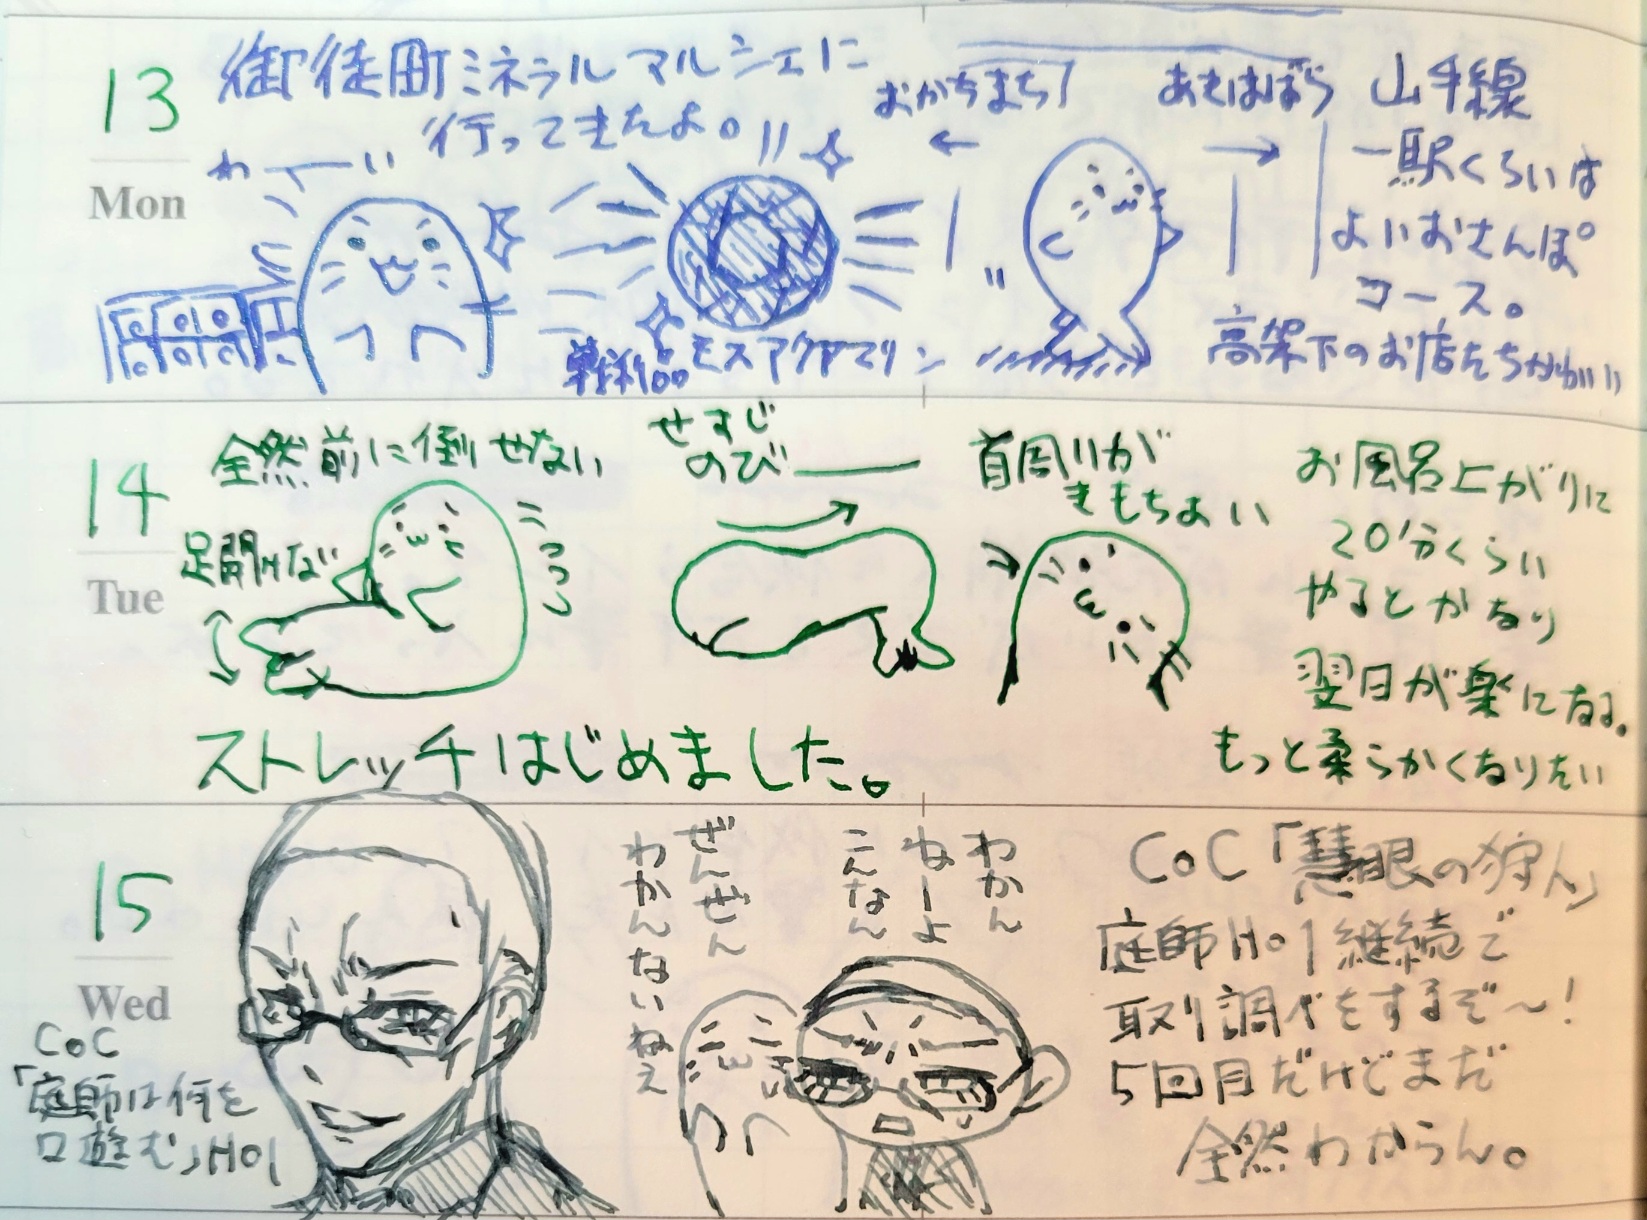 13
Mon
御徒町ミネラルマルシェに
行ってきたよ。
わーい
戦利品 モスアクアマリン
おかちまち
あきはばら
山手線
一駅くらいは
よいおさんぽ
コース。
高架下のお店たちかわいい
14
Tue
全然前に倒せない
足開けない
せすじ
のびー
首周りが
きもちよい
お風呂上がりに
20分くらい
やるとかなり
翌日が楽になる。
もっと柔らかくなりたい
ストレッチはじめました。
15
Wed
CoC
「庭師は何を
口遊む」HO1
わかん
ねーよ
こんなん
ぜんぜん
わかんないねえ
CoC「慧眼の狩人」
庭師HO1継続で
取り調べをするぞ〜！
5回目だけどまだ
全然わからん。